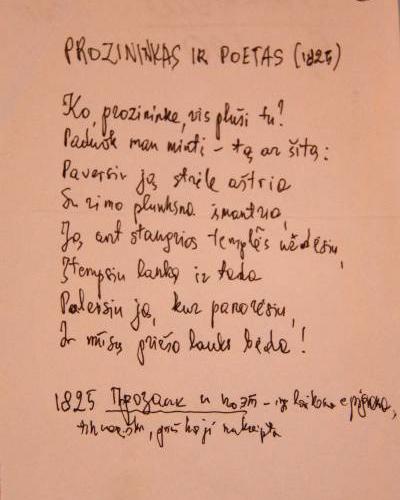 PROZININKAS IR POETAS (1825)
Ko, prozininke, vis pluši tu?
Paduok man minti – tą ar šitą:
Paversiu ją strėle aštria
Su rimo plunksna išmantria,
Ją ant stangrios templės uždėsiu,
Įtempsiu lanką ir tada
Paleisiu ją, kur panorėsiu,
Ir mūsų priešo lauks bėda!
1825 Прозаик и поэт – epigrama,